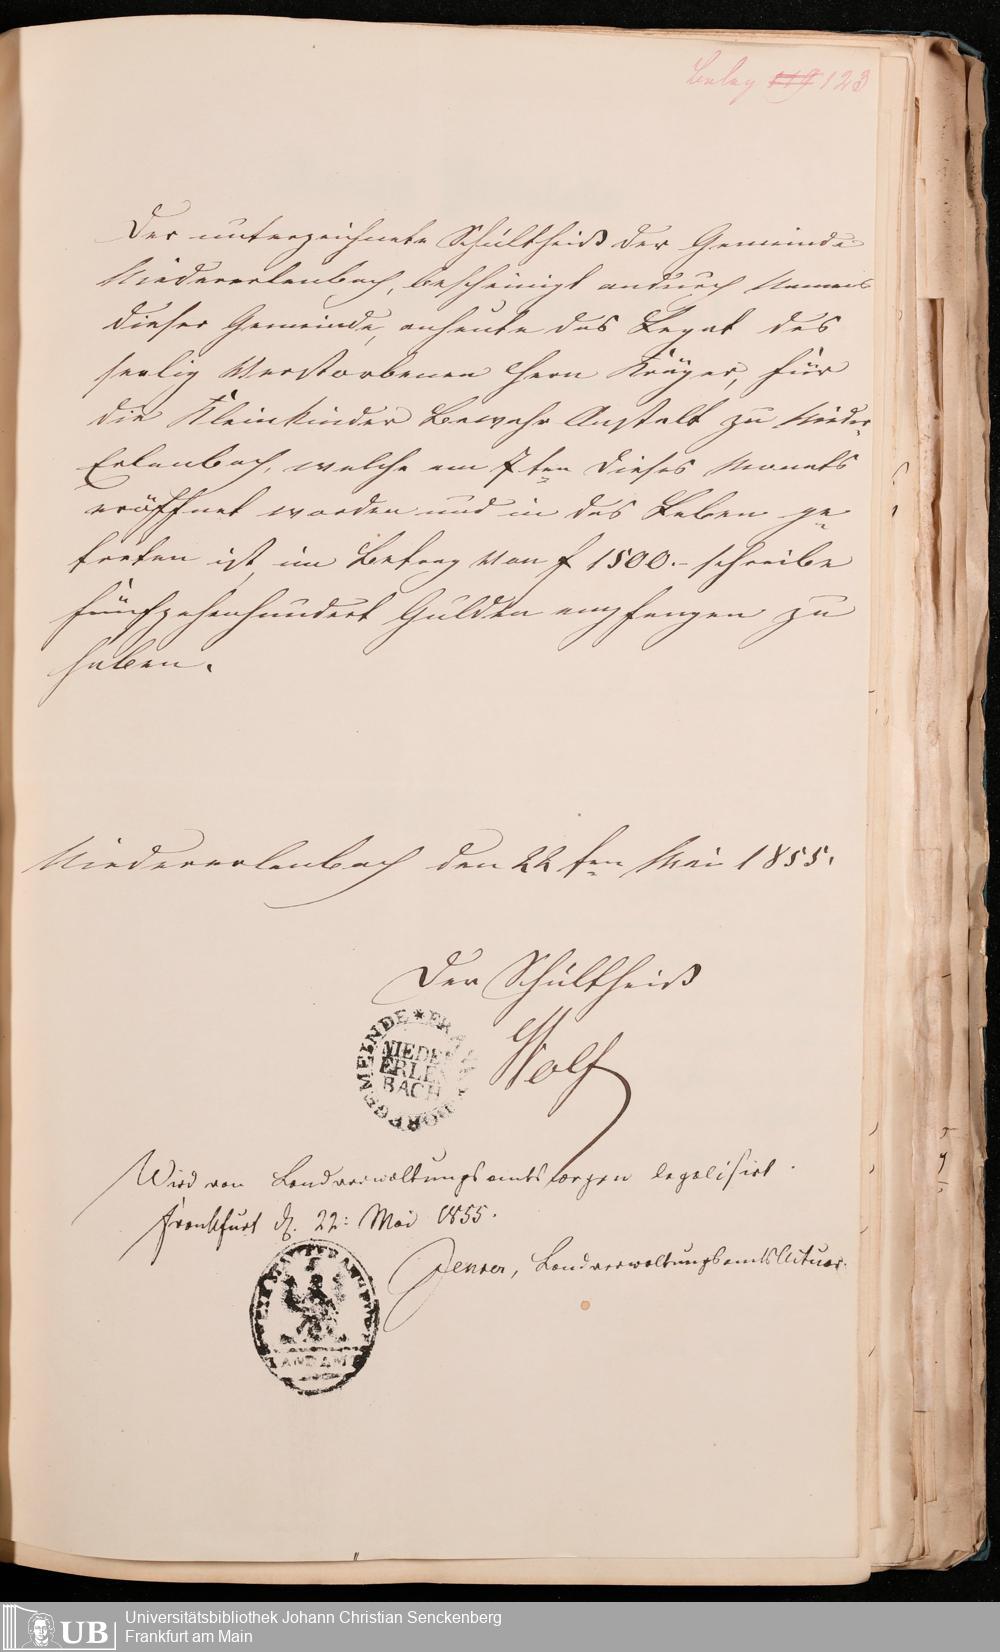 Beleg 119 123
Der unterzeichnete Schultheiß der Gemeinde
Niedererlenbach, bescheinigt andurch Namens
dieser Gemeinde, anheute das Legat des
seelig Verstorbenen Herrn Krüger, für
die Kleinkinder Bewahr Anstalt zu Nieder-
Erlenbach, welche am 7ten dieses Monats
eröffnet worden und in das Leben ge-
treten ist, im Betrag von f 1500.- schreibe
fünfzehenhundert Gulden empfangen zu
haben.
Niedererlenbach den 22ten Mai 1855.
Der Schultheiß
Wolf
NIEDER
ERLEN
BACH
Wird von Landverwaltungsamtswegen legalisirt.
Frankfurt d. 22: Mai 1855.
LANDAMT
Landverwaltungsamts Actuar.
Universitätsbibliothek Johann Christian Senckenberg
Frankfurt am Main
UB